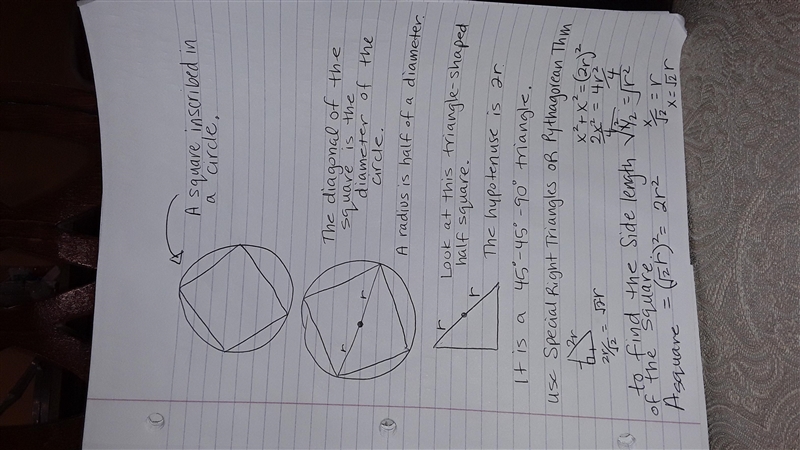 A square inscribed in
a circle.
The diagonal of the
square is the
diameter of the
circle.
r
r
A radius is half of a diameter.
Look at this triangle-shaped
half square.
r
r
The hypotenuse is 2r
It is a 45°-45°-90° triangle.
use Special Right Triangles OR Pythagorean Thm
2r
2r/√2 = √2r
x² + x² = (2r)²
2x² = 4r²
4 4
√x²/2 = √r²
x/√2 = r
x = √2 r
to find the side length
of the square
A square = (√2 r)² = 2r²